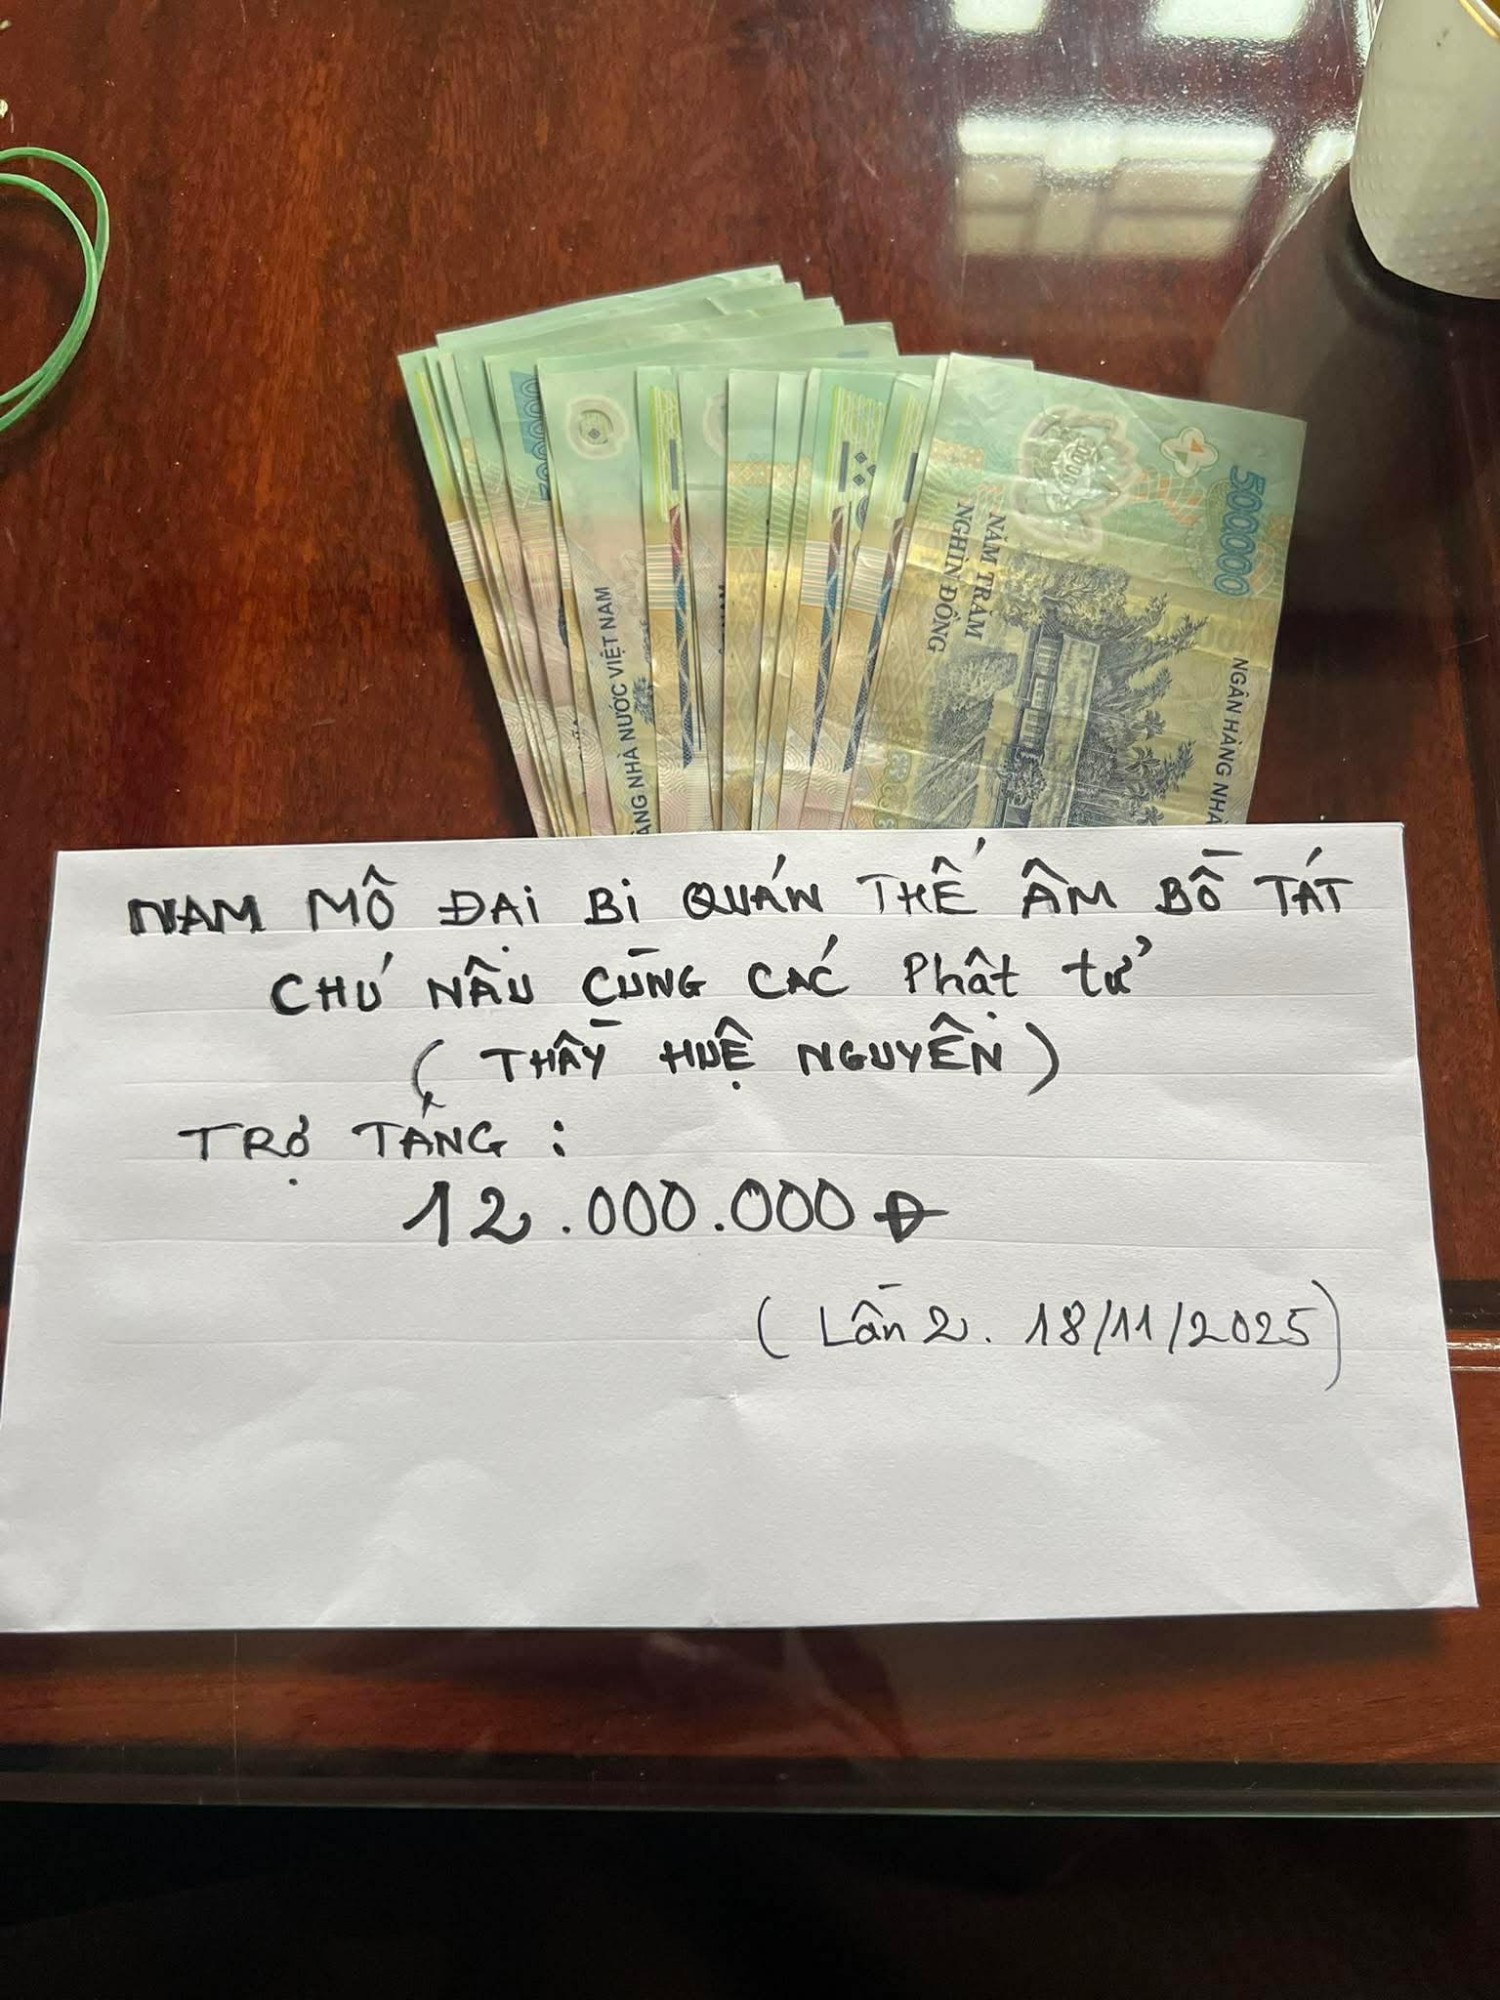 500000
NĂM TRĂM
NGHÌN ĐỒNG
NGÂN HÀNG NHÀ
ÀNG NHÀ NƯỚC VIỆT NAM
NAM MÔ ĐẠI BI QUÁN THẾ ÂM BỒ TÁT
CHÚ NẬU CÙNG CÁC Phật tử
(THẦY HUỆ NGUYÊN)
TRỢ TÁNG:
12.000.000Đ
(Lần 2. 18/11/2025)